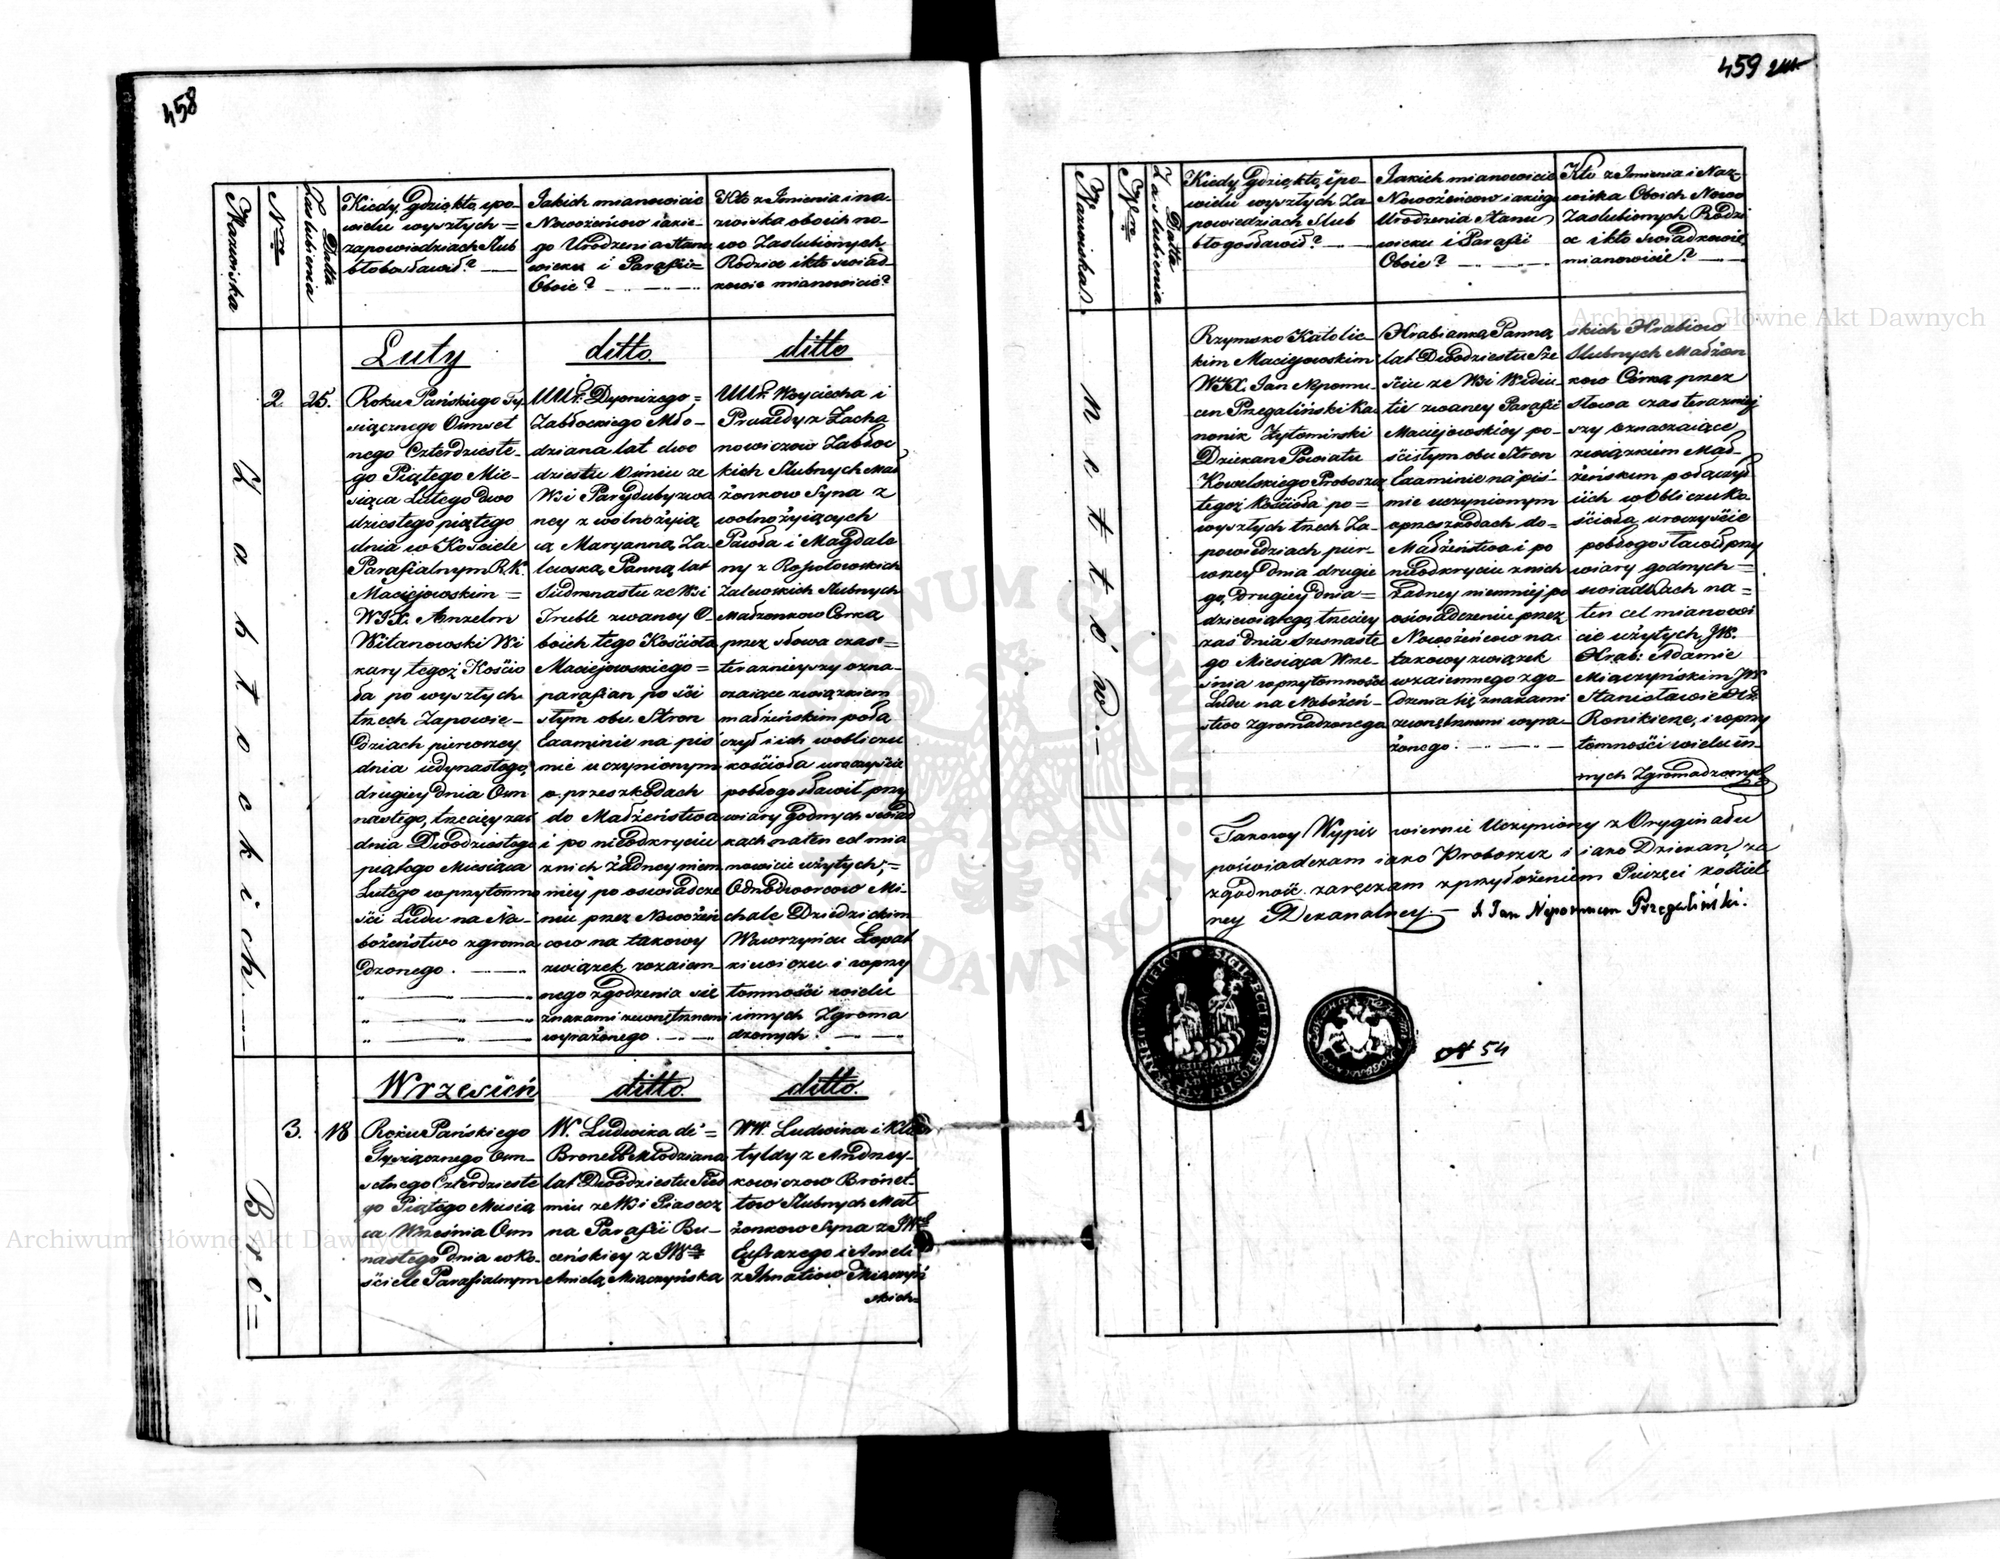 458
Nazwiska
Nro
Datta Zaslubienia
Kiedy, gdzie, kto, i po
wielu wyszłych =
zapowiedziach Slub
błobosławił? —
Jakich mianowicie
Nowożeńcow i iakie-
go Urodzenia Stanu
wieku i Parafii =
Oboie? —
Kto z Jmienia i na-
zwiska oboich no-
wo Zaslubionych
Rodzice i kto swiad-
kowie mianowicie?
Luty
ditto.
ditto
Zabłockich.
2.
25.
Roku Pańskiego Ty-
siącznego Ośmset
nego Czterdzieste-
go Piątego Mie-
siąca Lutego dwo
dziestego piątego
dnia w Kościele
Parafialnym R.K.
Maciejowskim =
WJX. Anzelm
Witanowski Wi
kary tegoż Kościo
ła po wyszłych
trzech Zapowie-
dziach pierwszey
dnia iedynastego,
drugiey dnia Ośm
nastego, trzeciey zaś
dnia Dwódziestego
piątego Miesiąca
Lutego w przytomno
ści Ludu na Na-
bożeństwo zgroma
dzonego. —
UUr. Dyonizego =
Zabłockiego Mło-
dziana lat dwo
dziestu Ośmiu ze
Wsi Paryduby zwa
ney z wolnożyią
cą Maryanną Za-
lewską Panną lat
Siedmnastu ze Wsi
Truble zwaney O-
boich tego Kościoła
Maciejowskiego =
parafian po ści
słym obu Stron
Examinie na piś
mie uczynionym
o przeszkodach
do Małżeństwa
i po nieodkryciu
z nich żadney niem
niey po oswiadcze
niu przez Nowożeń
cow na takowy
związek wzaiem-
nego zgodzenia się
znakami zewnętrznemi
wyrażonego. —
UUr. Woyciecha i
Prusedy z Zacha
nowiczow Zabłoc
kich Slubnych Mał
żonkow Syna z
wolnożyiących
Pawła i Magdale
ny z Rosołowskich
Zalewskich Slubnych
Małżonkow Corką
przez słowa czas =
teraznieyszy ozna-
czaiące związkiem
małżeńskim połą
czył i ich wobliczu
kościoła uroczyście
pobłogosławił przy
wiary godnych swiad
kach na ten cel mia
nowicie użytych; =
Odnodworcow Mi-
chale Dziedzickim
Wawrzyńcu Łopat
kiewiczu i w przy
tomności wielu
innych Zgroma
dzonych. —
Wrzesień
ditto.
ditto.
Bró =
3.
18
Roku Pańskiego
Tysiącznego Ośm-
setnego Czterdzieste
go Piątego Miesią
ca Wrześnią Ośm
nastego dnia w Ko-
ściele Parafialnym
W. Ludwika de =
Bronett Młodziana
lat Dwódziestu Sied
miu ze Wsi Piasecz
na Parafii Bu-
ceńskiey z JWą
Anielą Miączyńską
WW. Ludwika i Klo
tyldy z Andrey-
kowiczow Bronet-
tow Slubnych Mał
żonkow Syna z JW
Eufrazego i Anieli
z Ihnatiow Miączyń
skich
459
Nazwiska.
Nro
Datta Zaslubienia
Kiedy, gdzie, kto, i po-
wielu wyszłych Za
powiedziach Slub
błogosławił? —
Jakich mianowicie
Nowożeńcow i iakiego
Urodzenia Stanu
wieku i Parafii
Oboie? —
Kto z Jmienia i Naz-
wiska Oboich Nowo
Zaslubionych Rodzi
ce i kto swiadkowie
mianowicie? —
nettów. —
Rzymsko Katolic-
kim Maciejowskim
WJX. Jan Nepomu-
cen Przegaliński Ka
nonik Żytomirski
Dziekan Powiatu
Kowelskiego Proboszcz
tegoż Kościoła po =
wyszłych trzech Za-
powiedziach pier-
wszey dnia drugie
go, drugiey dnia =
dziewiątego, trzeciey
zaś dnia szesnaste
go Miesiąca Wrze-
śnia w przytomności
Ludu na Nabożeń-
stwo zgromadzonego
Hrabianką Panną,
lat Dwódziestu Sze
ściu ze Wsi Widiu-
tie zwaney Parafii
Maciejowskiey po-
ścisłym obu Stron
Examinie na piś-
mie uczynionym
o przeszkodach do-
Małżeństwa i po
nieodkryciu z nich
żadney niemniey po
oświadczeniu przez
Nowożeńcow na-
takowy związek
wzaiemnego zgo-
dzenia się znakami
zewnętrznemi wyra-
żonego. —
skich Hrabiow
Slubnych Małżon
kow Córką przez
słowa czas teraźniey
szy oznaczaiące
związkiem Mał-
żeńskim połączył
i ich w Obliczu Ko-
ścioła uroczyście
pobłogosławił przy
wiary godnych =
swiadkach na =
ten cel mianowi
cie użytych, JW.
Hrab: Adamie
Miączyńskim JW
Stanisławie Hr.
Ronikierze, i w przy
tomności wielu in-
nych Zgromadzonych
Takowy Wypis wiernie Uczyniony z Oryginału
poświadczam iako Proboszcz i iako Dziekan, za
zgodność zaręczam z przyłożeniem Pieczęci kościel
ney i Dekanalney. — X Jan Nepomucen Przegaliński.
№ 54
Archiwum Główne Akt Dawnych
Archiwum Główne Akt Dawnych